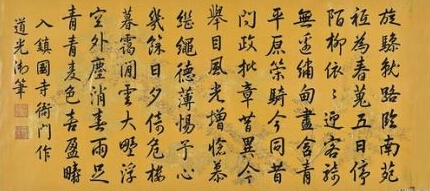 旋驂熟路蹕南苑
祗為春蒐五日停
陌柳依依迎客騎
無邊綺甸盡含青
平原策騎今同昔
問政批章昔異今
舉目風光增悵慕
繼繩德薄惕予心
幾餘日夕倚危樓
暮靄閒雲大野浮
空外塵消春雨足
青青麦色喜盈疇
入鎮國寺衙門作
道光御筆